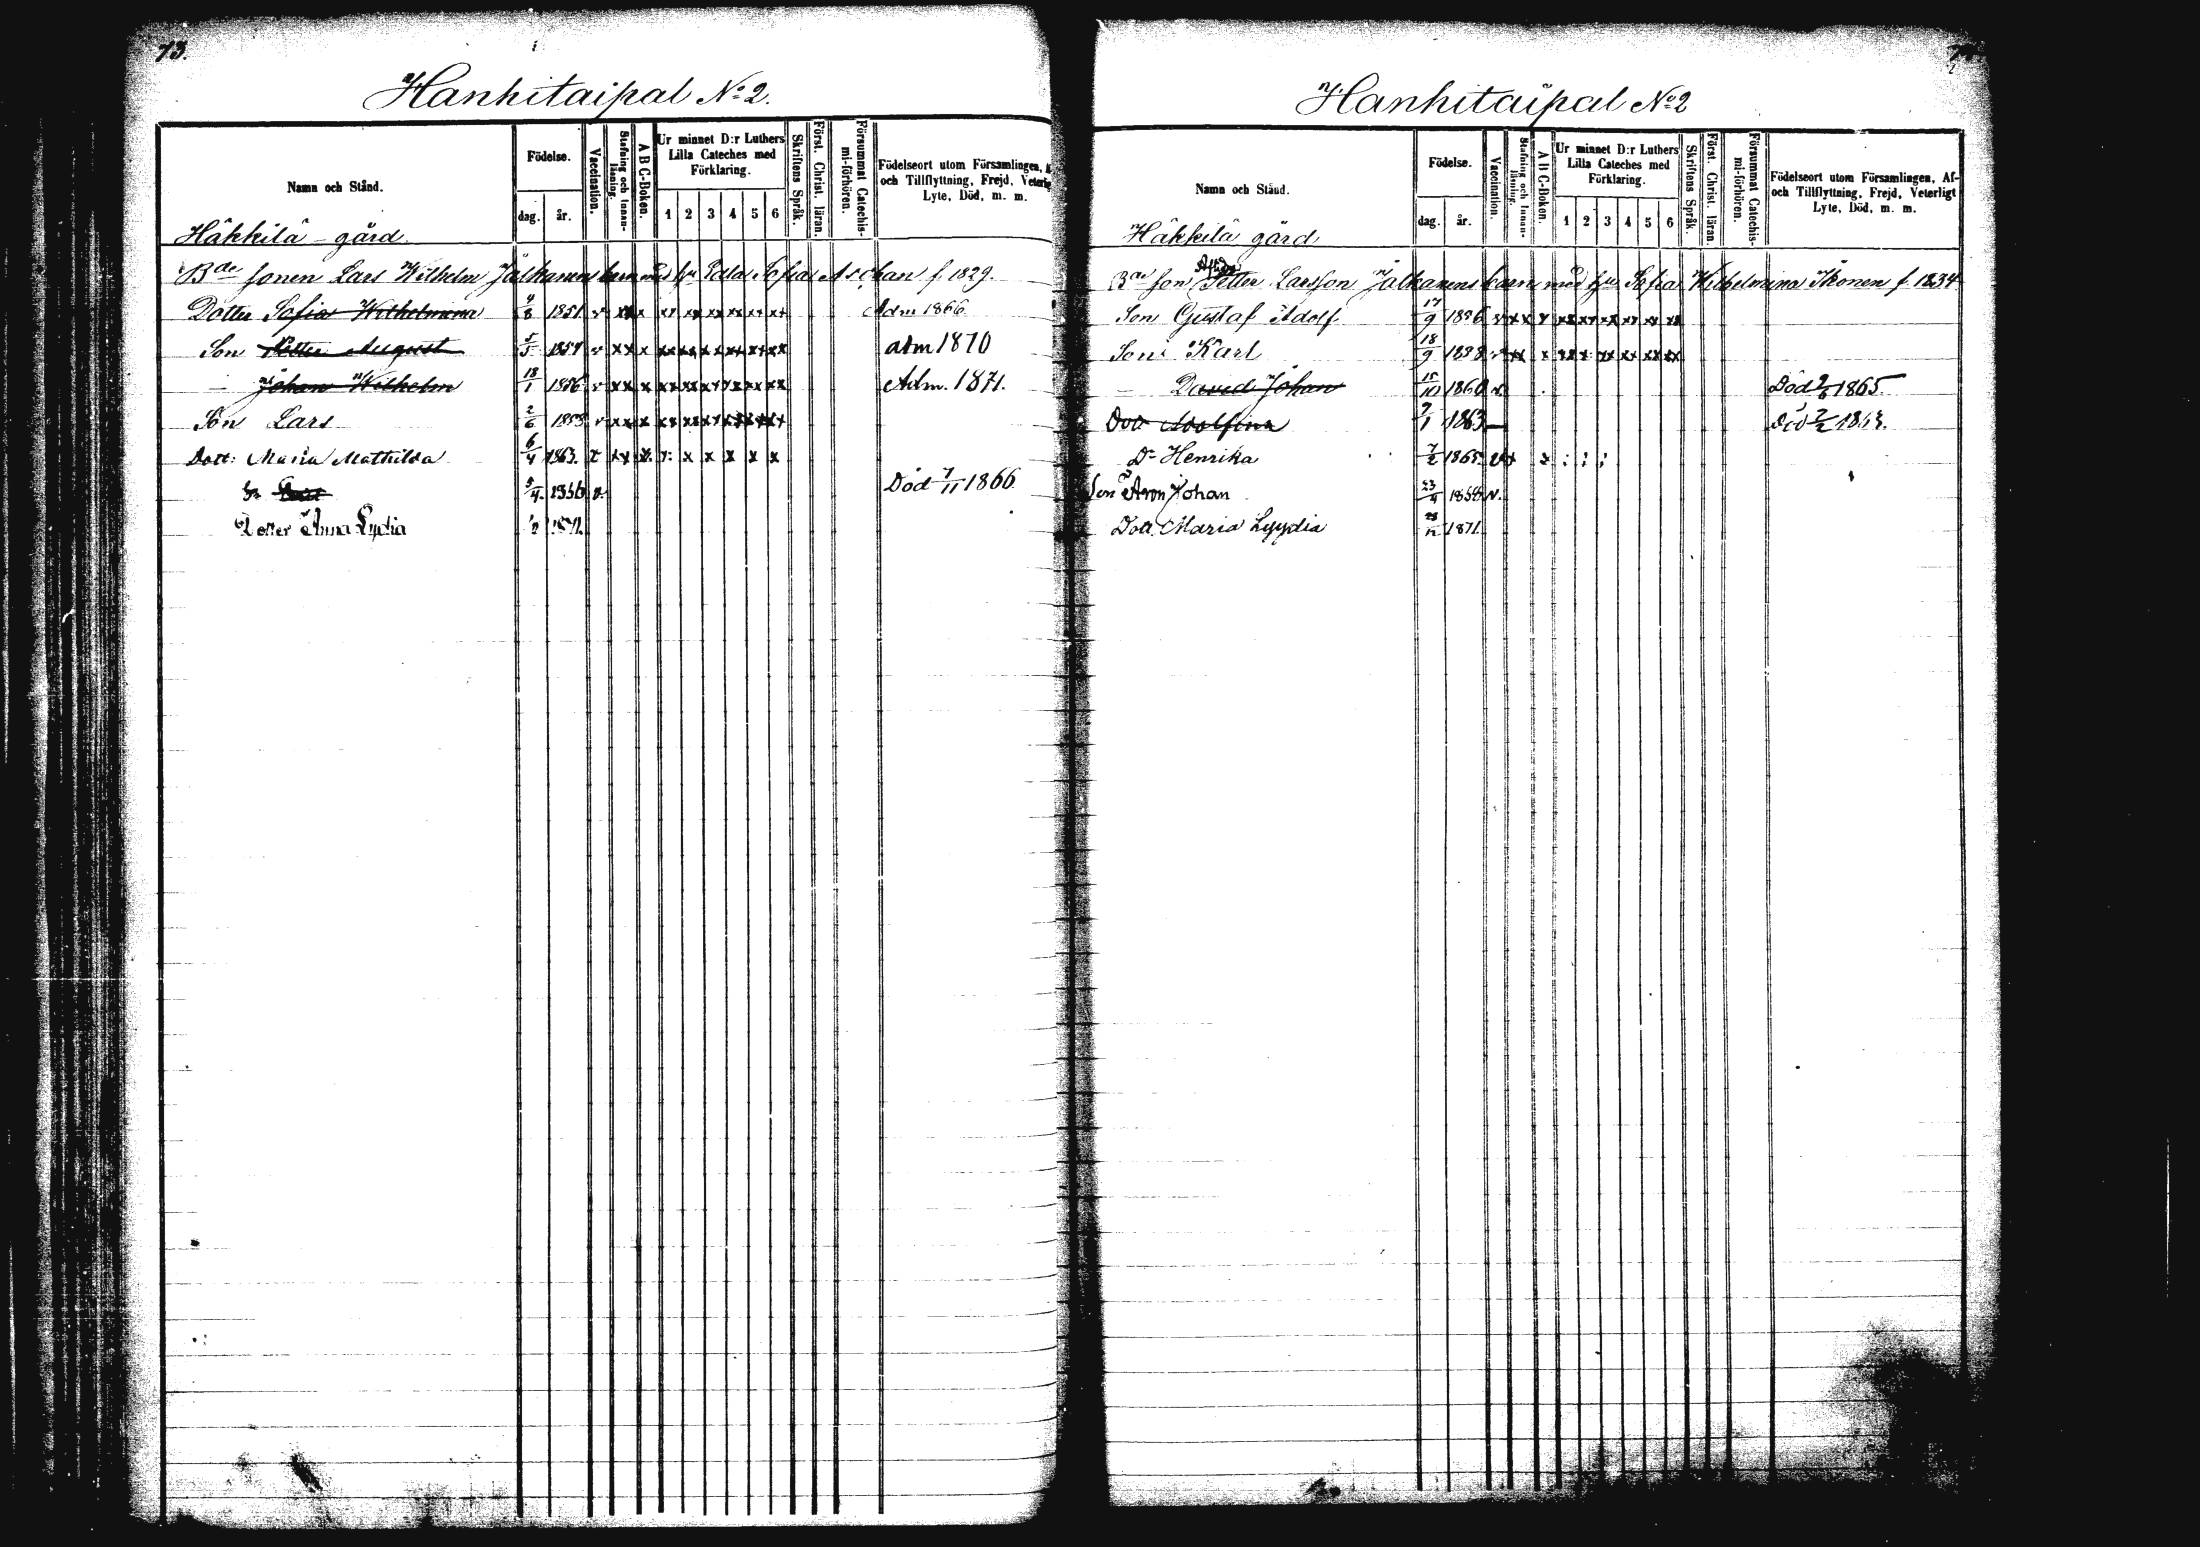 73.
Hanhitaipal No 2.
Namn och Stånd.
Födelse.
dag.
år.
Vaccination.
Stafning och Innan-
läsning.
A B C-Boken.
Ur minnet D:r Luthers
Lilla Cateches med
Förklaring.
1 2 3 4 5 6
Skriftens Språk.
Först. Christ. läran.
Försummat Catechis-
mi-förhören.
Födelseort utom Församlingen,
och Tillflyttning, Frejd,
Lyte, Död, m. m.
Häkkilä - gård.
Bde sonen Lars Wilhelm Jälkanens barn med hu Edla Sofia Aschan f. 1829.
Dotter Sofia Wilhelmina 1851 v xx x xx xx xx xx xx xx Adm 1866.
Son Petter August 5/5 1854 v xx x xx xx xx xx xx xx adm 1870
— Johan Wilhelm 18/1 1856 v xx x xx xx xx xx xx xx Adm. 1871.
Son Lars 2/6 v xx x xx xx xx xx xx xx
Dott: Maria Mathilda 6/4 1863. x x x x x
5/4 v. Död 7/11 1866
Dotter Anna Lydia 1871.
Hanhitaipal No 2
Namn och Stånd.
Födelse.
dag.
år.
Vaccination.
Stafning och Innan-
läsning.
A B C-Boken.
Ur minnet D:r Luthers
Lilla Cateches med
Förklaring.
1 2 3 4 5 6
Skriftens Språk.
Först. Christ. läran.
Försummat Catechis-
mi-förhören.
Födelseort utom Församlingen, Af-
och Tillflyttning, Frejd, Veterligt
Lyte, Död, m. m.
Häkkilä gård
Bde son Petter Larsson Jälkanens barn med hu Sofia Wilhelmina Ikonen f. 1834
Son Gustaf Adolf 17/9 1856 v xx x xx xx xx xx xx xx
Son Karl 18/9 1858 v xx x xx xx xx xx xx xx
— David Johan 15/10 1860 v. Död 2/6 1865.
Dott Adolfina 7/1 1863 — Död 2/2 1863.
Dr Henrika 7/2 1865
Son Aron Johan 23/4 1868 v.
Dott. Maria Lyydia 1871.